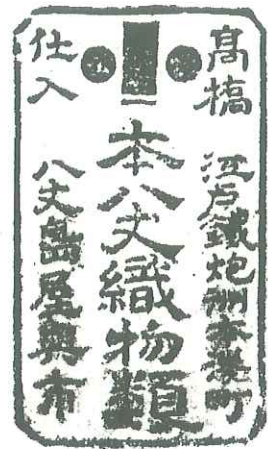 髙橋
江戸鐵炮洲本湊町
本八丈織物類
仕入
八丈島屋與市